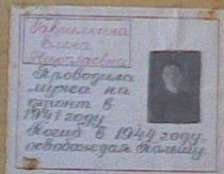 Гаврилкина
Елена
Николаевна
Проводила
мужа на
фронт в
1941 году.
Погиб в 1944 году,
освобождая Польшу